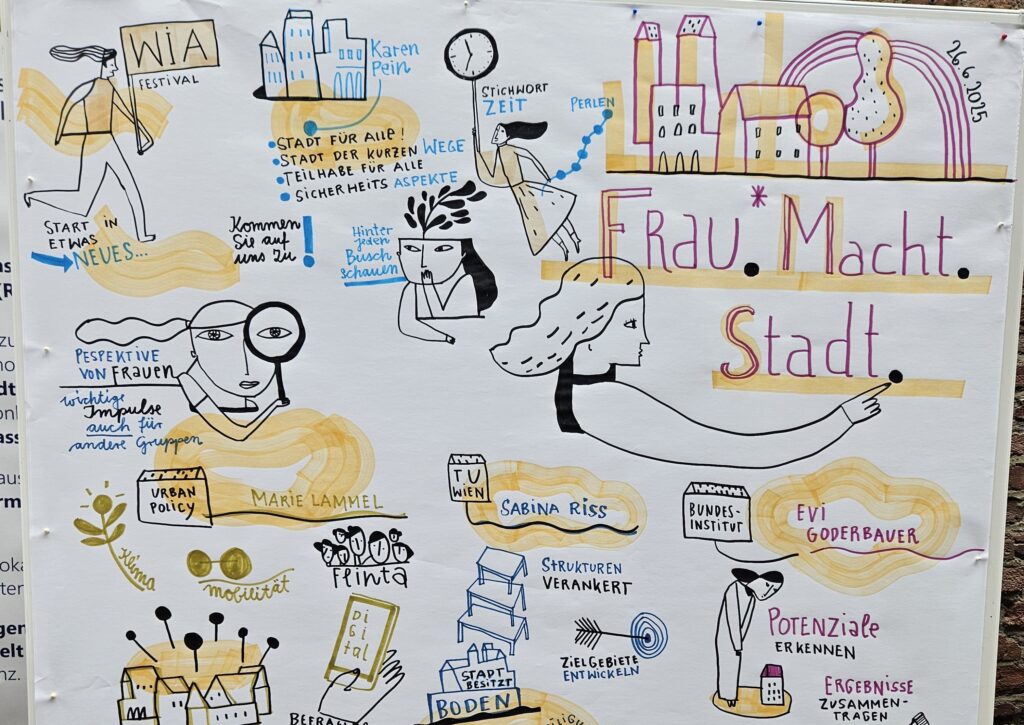 WiA
FESTIVAL
START IN
ETWAS
NEUES...
Karen
Pein
STADT FÜR ALLE!
STADT DER KURZEN WEGE
TEILHABE FÜR ALLE
SICHERHEITS ASPEKTE
Kommen
Sie auf
uns zu !
Hinter
jeden
Busch
schauen
STICHWORT
ZEIT
PERLEN
26.6.2025
FRau*. Macht.
Stadt.
PESPEKTIVE
VON FRAUEN
wichtige
Impulse
auch für
andere Gruppen
URBAN
POLICY
MARIE LAMMEL
Klima
mobilität
Flinta
DiGital
T.U
WIEN
SABINA RISS
STRUKTUREN
VERANKERT
ZIELGEBIETE
ENTWICKELN
STADT
BESITZT
BODEN
BUNDES-
INSTITUT
EVI
GODERBAUER
POTENZIALE
ERKENNEN
ERGEBNISSE
ZUSAMMEN-
TRAGEN